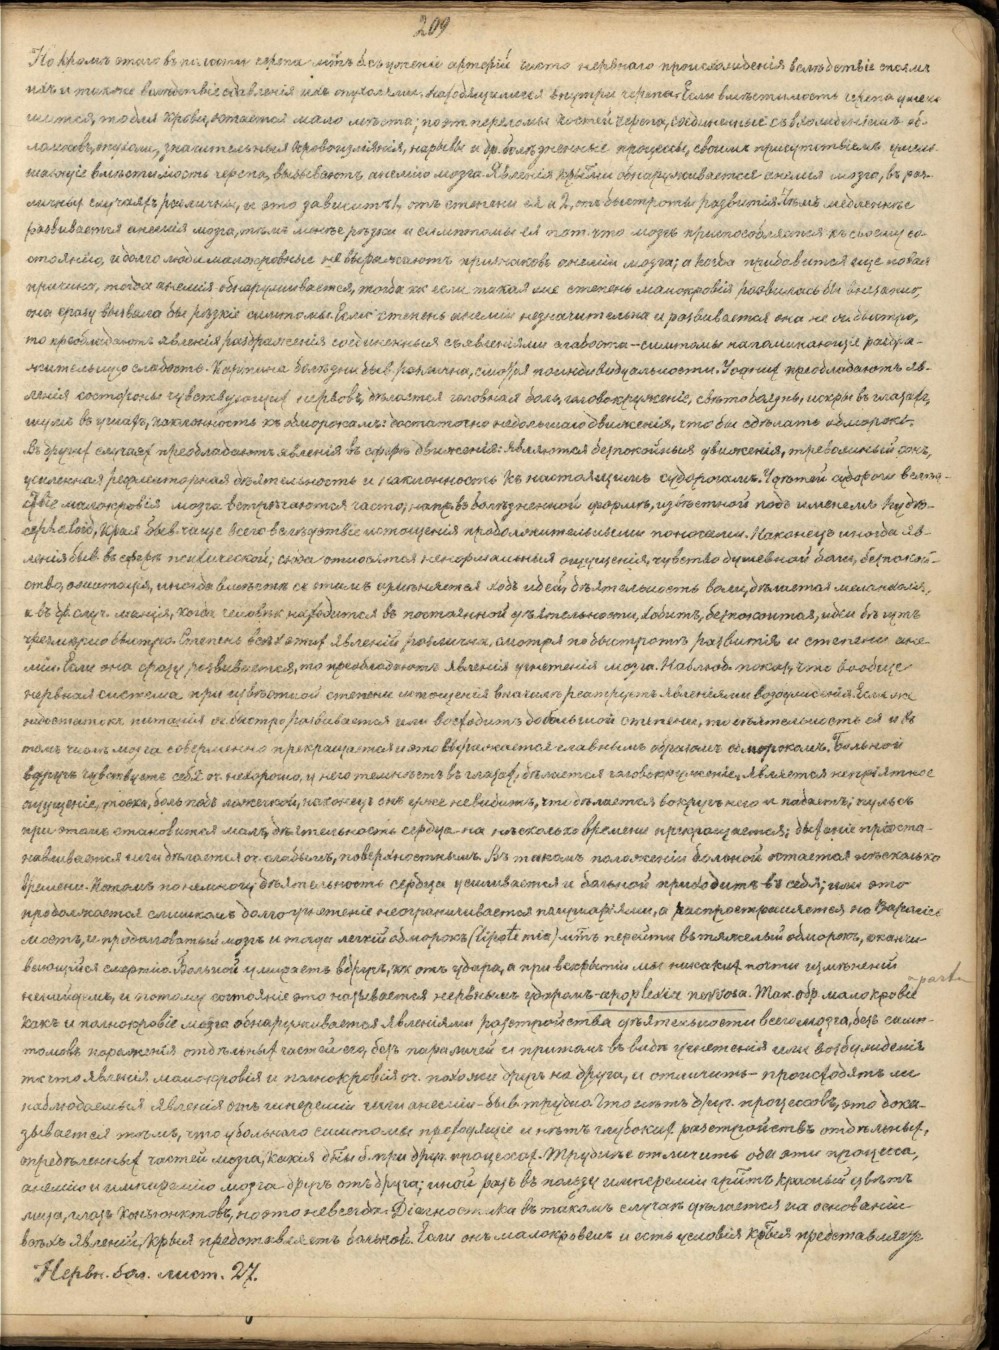 209
Но кромѣ этого въ полости черепа м. быть съуженіе артерій чисто нервнаго происхожденія вслѣдствіе спазма
ихъ и также вслѣдствіе сдавленія ихъ опухолями, находящимися внутри черепа. Если вмѣстимость черепа умень-
шится, то для крови остается мало мѣста; поэт. переломы костей черепа, соединенные съ вхожденіемъ об-
ломковъ, опухоли, значительныя кровоизліянія, нарывы и др. болѣзненные процессы, своимъ присутствіемъ умень-
шающіе вмѣстимость черепа, вызываютъ анемію мозга. Явленія крыми обнаруживается анемія мозга, въ раз-
личных случаяхъ различны, и это зависитъ 1, отъ степени ея и 2, отъ быстроты развитія. Чѣмъ медленнѣе
развивается анемія мозга, тѣмъ менѣе рѣзки и симптомы ея пот. что мозгъ приспособляется къ своему со-
стоянію, и долго люди малокровные не выражаютъ признаковъ анеміи мозга; а когда прибавится еще новая
причина, тогда анемія обнаруживается, тогда кк если такая же степень малокровія развилась бы внезапно,
она сразу вызвала бы рѣзкіе симптомы. Если степень анеміи незначительна и развивается она не оч. быстро,
то преобладаютъ явленія раздраженія соединенныя съ явленіями слабости – симптомы напоминающіе раздра-
жительную слабость. Картина болѣзни быв. различна, смотря по индивидуальности. У однихъ преобладаютъ яв-
ленія со стороны чувствующихъ нервовъ, дѣлается головная боль, головокруженіе, свѣтобоязнь, искры въ глазахъ,
шумъ въ ушахъ, наклонность къ обморокамъ: достаточно небольшаго движенія, чтобы сдѣлать обморокъ.
Въ другихъ случаяхъ преобладаютъ явленія въ сферѣ движенія: являются безпокойныя движенія, тревожный сонъ,
усиленная рефлекторная дѣятельность и наклонность къ настоящимъ судорогамъ. У дѣтей судороги вслѣд-
ствіе малокровія мозга встрѣчаются часто, напр. въ болѣзненной формѣ, извѣстной подъ именемъ hydro-
cephaloid, края быв. чаще всего вслѣдствіе истощенія продолжительными поносами. Наконецъ иногда яв-
ленія быв. въ сферѣ психической; сюда относятся ненормальныя ощущенія, чувство душевной боли, безпокой-
ство, ажитація, иногда вмѣстѣ съ этимъ измѣняется ходъ идей, дѣятельность воли, дѣлается меланхолія,
а въ др. случ. манія, когда человѣкъ находится въ постоянной дѣятельности, ходитъ, безпокоится, идеи бѣгутъ
чрезмѣрно быстро. Степень всѣхъ этихъ явленій различна, смотря по быстротѣ развитія и степени ане-
міи. Если она сразу развивается, то преобладаютъ явленія угнетенія мозга. Наблюд. показ., что вообще
нервная система при извѣстной степени истощенія вначалѣ реагируетъ явленіями возбужденія. Если же
недостатокъ питанія оч. быстро развивается или восходитъ до большой степени, то дѣятельность ея и въ
томъ числѣ мозга совершенно прекращается и это выражается главнымъ образомъ обморокомъ. Больной
вдругъ чувствуетъ себя оч. нехорошо, у него темнѣетъ въ глазахъ, дѣлается головокруженіе, является непріятное
ощущеніе, тоска, боль подъ ложечкой, наконецъ онъ уже не видитъ, что дѣлается вокругъ него и падаетъ; пульсъ
при этомъ становится малъ, дѣятельность сердца на нѣсколько времени прекращается; дыханіе пріоста-
навливается или дѣлается оч. слабымъ, поверхностнымъ. Въ такомъ положеніи больной остается нѣсколько
времени. Потомъ понемногу дѣятельность сердца усиливается и больной приходитъ въ себя; или это
продолжается слишкомъ долго – угнетеніе не ограничивается полушаріями, а распространяется на Вароліевъ
мостъ, и продолговатый мозгъ и тогда легкій обморокъ (lipotemia) м. быть перейти въ тяжелый обморокъ, оканчи-
вающійся смертію. Больной умираетъ вдругъ, кк отъ удара, а при вскрытіи мы никакихъ почти измѣненій
не найдемъ, и потому состояніе это называется нервнымъ ударомъ – apoplexia nervosa. Так. обр. малокровіе
какъ и полнокровіе мозга обнаруживается явленіями разстройства дѣятельности всего мозга, безъ симп-
томовъ пораженія отдѣльныхъ частей его, безъ параличей и притомъ въ видѣ угнетенія или возбужденія
тк что явленія малокровія и полнокровія оч. похожи другъ на друга, и отличить – происходятъ ли
наблюдаемыя явленія отъ гипереміи или анеміи – быв. трудно. Что нѣтъ друг. процессовъ, это дока-
зывается тѣмъ, что у больнаго симптомы преходящіе и нѣтъ глубокихъ разстройствъ отдѣльныхъ,
опредѣленныхъ частей мозга, какія были б. при друг. процессахъ. Труднѣе отличить оба эти процесса,
анемію и гиперемію мозга другъ отъ друга; иной разъ въ пользу гипереміи гритъ красный цвѣтъ
лица, глазъ конъюнктивъ, но это не всегда. Діагностика въ такомъ случаѣ дѣлается на основаніи
всѣхъ явленій, крыя представляетъ больной. Если онъ малокровенъ и есть условія крыя представляютъ
Нервн. бол. лист. 27.